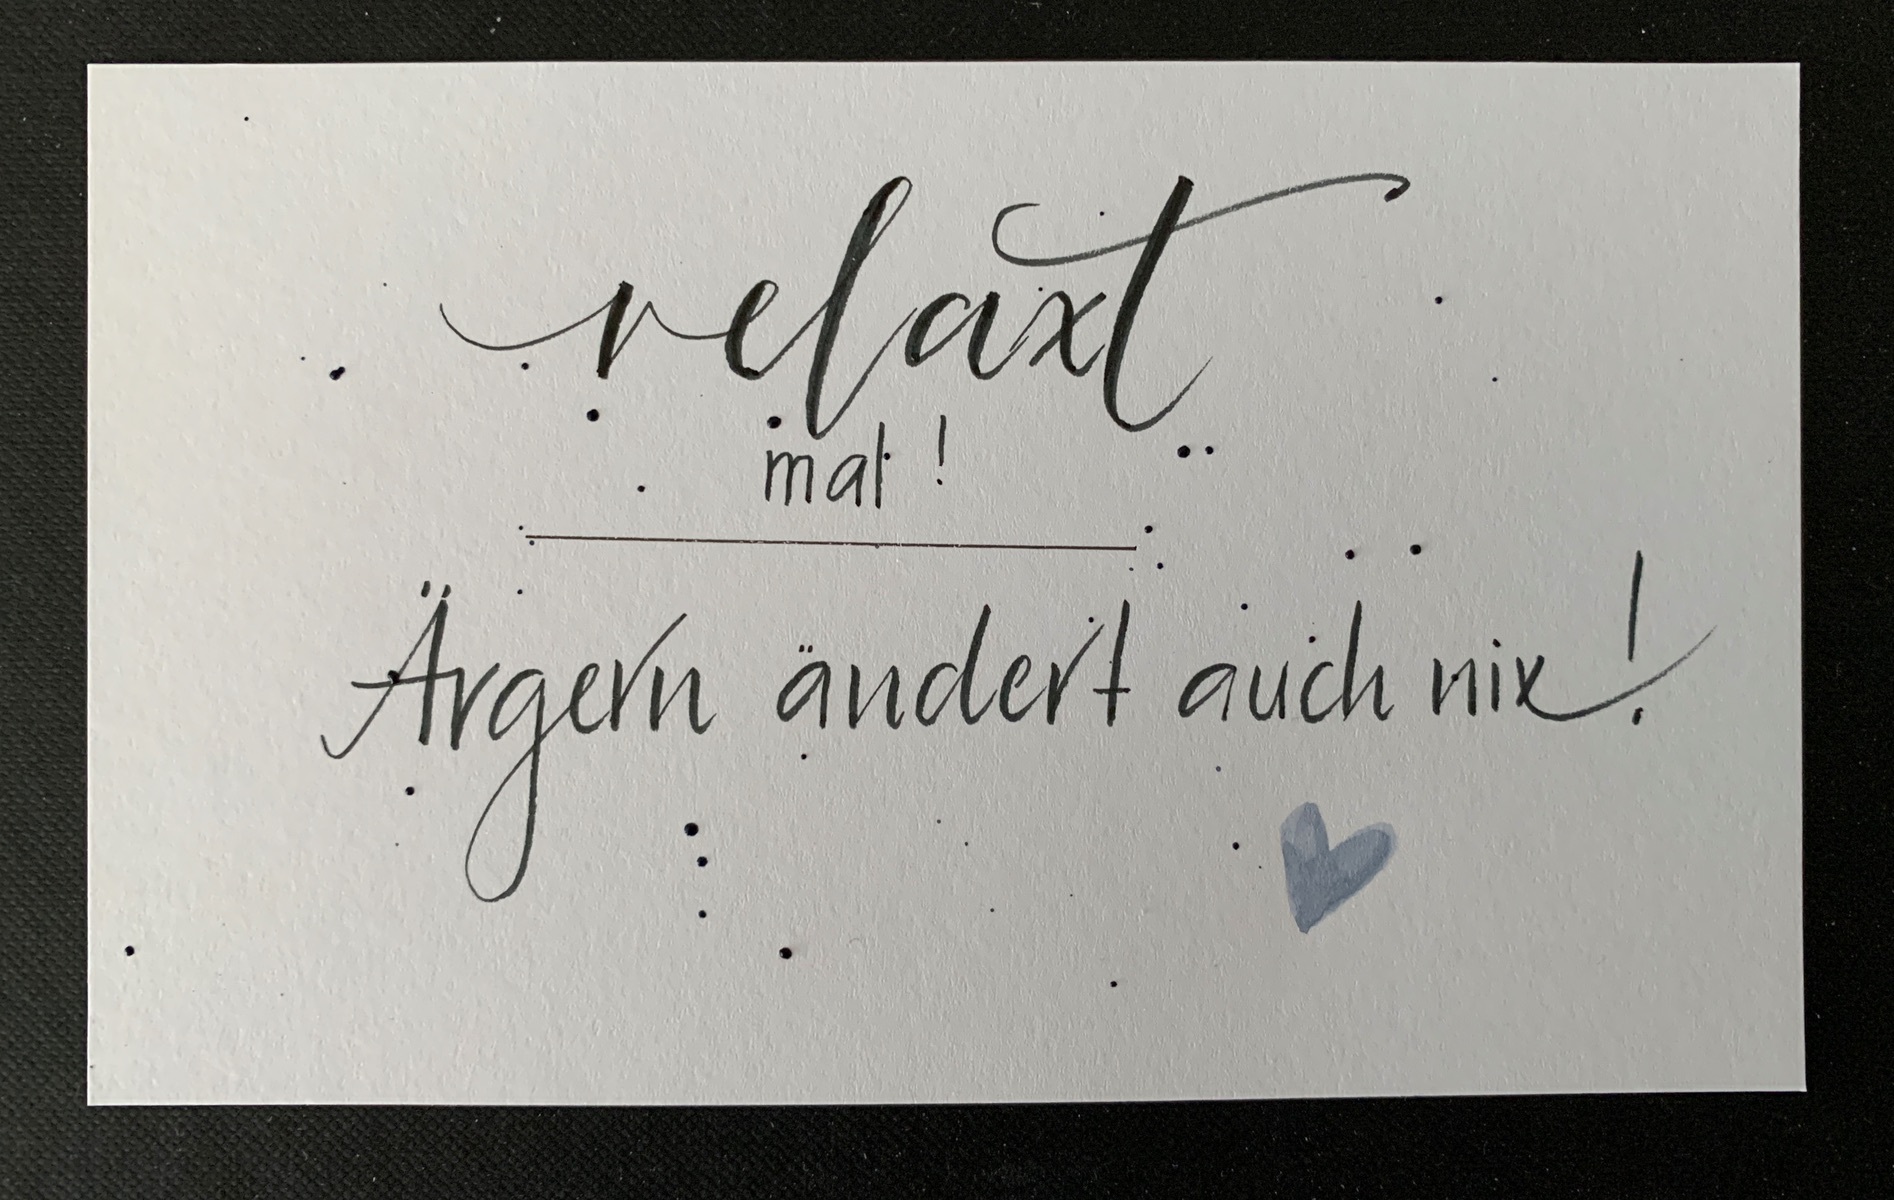 relaxt
mal !
Ärgern ändert auch nix!